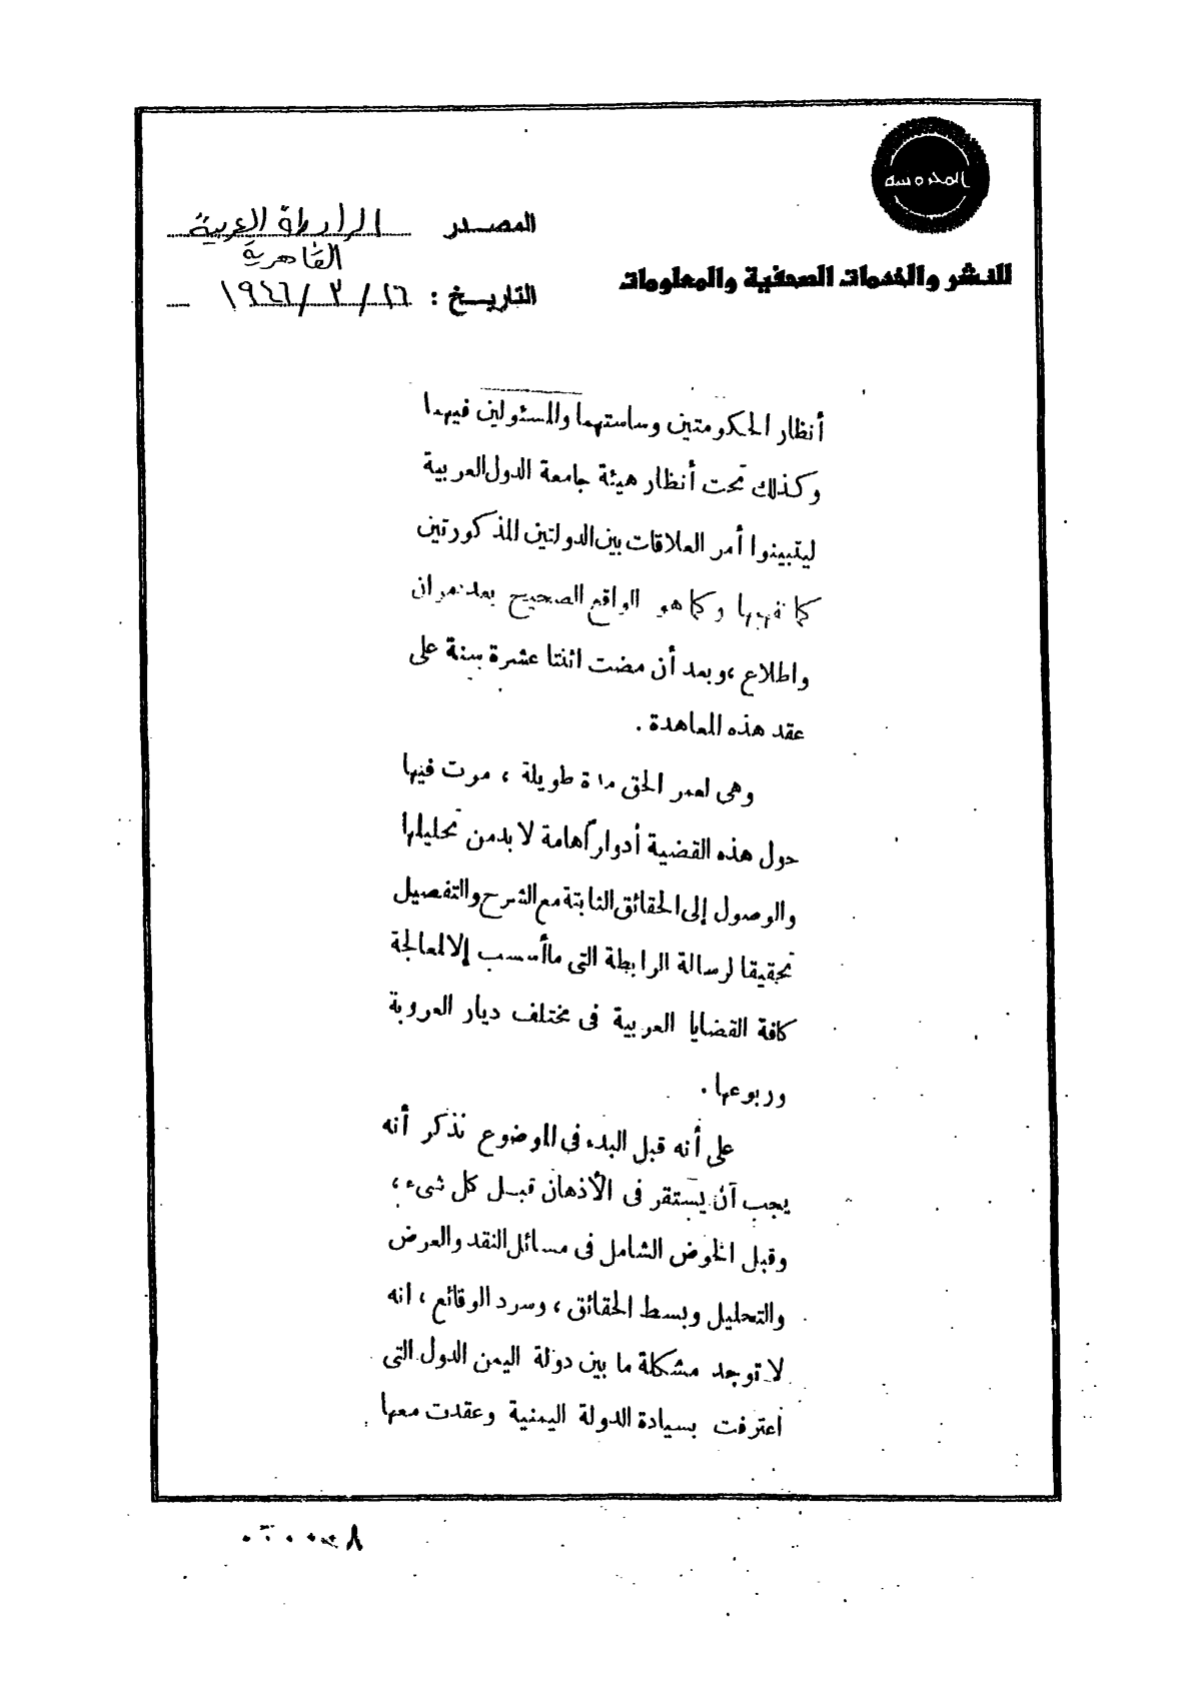 المحروسة
للنشر والخدمات الصحفية والمعلومات
المصدر الرابطة العربية
القاهرية
التاريخ : ١٦ / ٣ / ١٩٤٦
أنظار الحكومتين وساستهما والمسئولين فيهما
وكذلك تحت أنظار هيئة جامعة الدول العربية
ليتبينوا أمر العلاقات بين الدولتين المذكورتين
كما نفهمها وكما هو الواقع الصحيح بعد مران
واطلاع ، وبعد أن مضت اثنتا عشرة سنة على
عقد هذه المعاهدة .
وهى لعمر الحق مدة طويلة ، مرت فيها
حول هذه القضية أدوار هامة لا بد من تحليلها
والوصول إلى الحقائق الثابتة مع الشرح والتفصيل
تحقيقا لرسالة الرابطة التى ما أسست إلا لمعالجة
كافة القضايا العربية فى مختلف ديار العروبة
وربوعها .
على أنه قبل البدء فى الموضوع نذكر أنه
يجب أن يستقر فى الأذهان قبل كل شىء ،
وقبل الخوض الشامل فى مسائل النقد والعرض
والتحليل وبسط الحقائق ، وسرد الوقائع ، انه
لا توجد مشكلة ما بين دولة اليمن الدول التى
اعترفت بسيادة الدولة اليمنية وعقدت معها